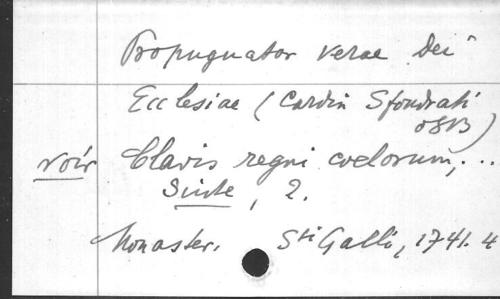 Propugnator verae Dei
Ecclesiae (Cardin Sfondrati
OSB)
voir Clavis regni coelorum, ...
Suite, 2.
Monaster. Sti Galli, 1741. 4